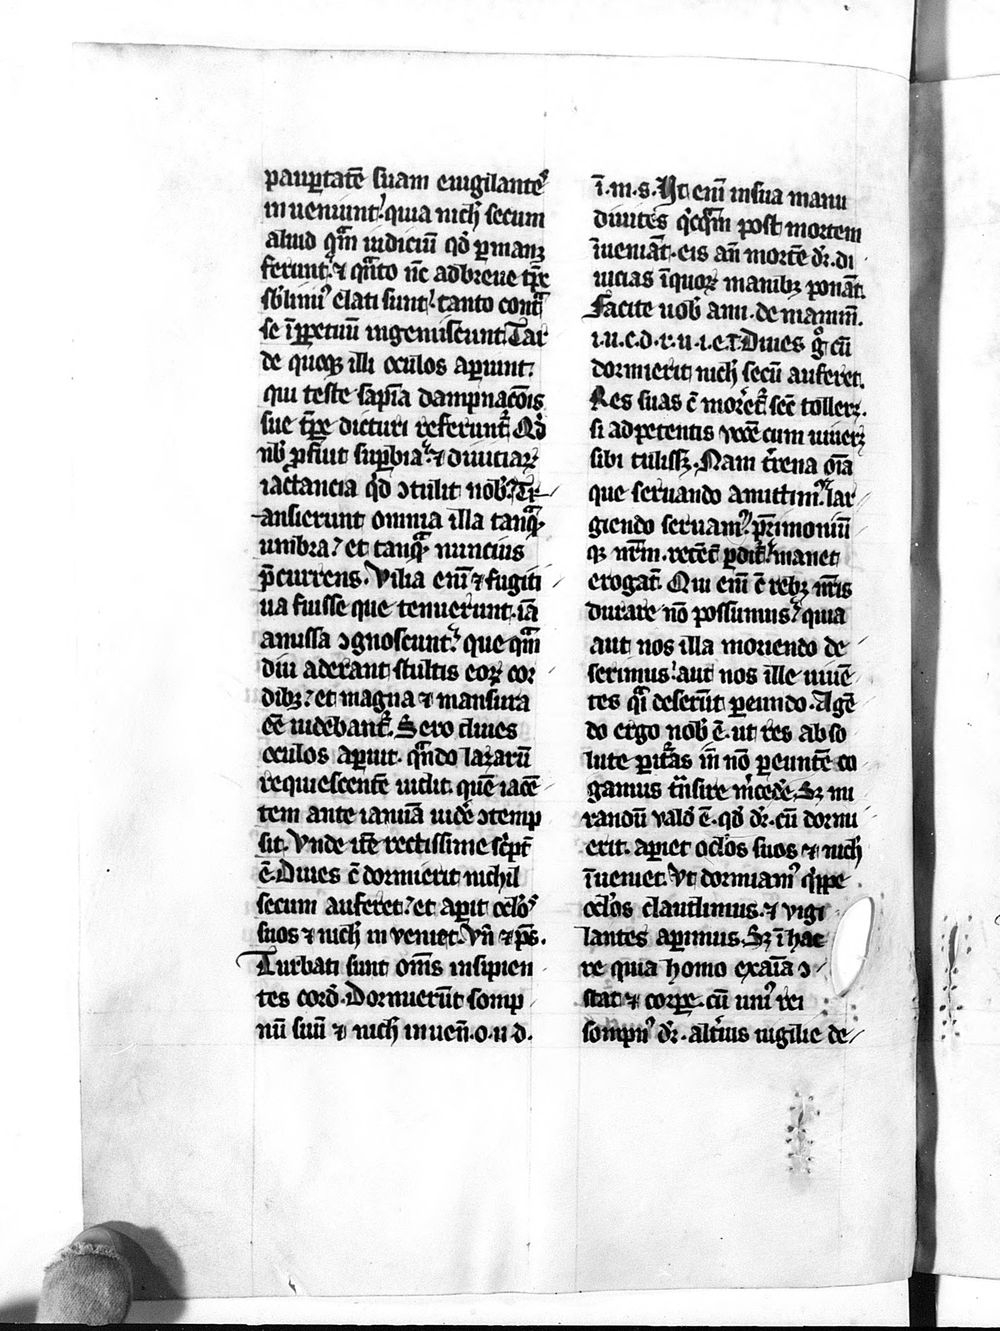 paup̱tatē suam euigilantes
inueniunt. quia nich̄ secum
aliud qm̄ iudiciū qd̓ p̱manꝫ
ferunt. ⁊ qn̄to nc̄ ad breue tp̄e
sb̓limiꝰ elati sunt. tanto cont̄
se īpp̱etuū ingemiscunt. Tar
de quoqꝫ illi oculos ap̱iunt.
qui teste sapīa dampnac̄ois
sue tp̄e dicturi referuntᷣ. Qd̓
nob̓ ꝓfuit sup̱bia. ⁊ diuiciaꝝ
iactancia qd̓ ↄtulit nob̓. Tr
ansierunt omnia illa tanqᷓ
umbra. et tanqᷓ nuncius
p̄currens. Vilia enī ⁊ fugiti
ua fuisse que tenuerunt. iā
amissa ↄgnoscunt. que qm̄
diu aderant stultis eoꝝ cor
dibꝫ. et magna ⁊ mansura
eē uidebantᷣ. Sero diues
oculos ap̱uit. qn̄do lazarū
requiescentē uidit. quē iacē
tem ante ianuā uidē ↄtemp
sit. Vnde iste rectissime sc̓pt̄
ē. Diues c̄ dormierit nichil
secum auferet. et ap̱it oclōs
suos ⁊ nich̄ inueniet. Vn̄ ⁊ ps̄.
Turbati sunt om̄s insipien
tes cord̓. Dormierūt somp
nū suū ⁊ nich̄ inuen̄. o. u. d.
ī. m. s. Ut enī in sua manu
diuites qc̓qm̄ post mortem
īueniāt. eis an̄ mortē dr̄. di
uicias īquoꝝ manibꝫ ponāt.
Facite uob̓ ami. de mamm̄.
i. u. c. d. r. u. i. e. t. Diues gͦ cū
dormierit nich̄ secū auferet.
Res suas c̄ moret̓ secū tollerꝫ.
si ad petentis vocē cum uiuerꝫ
sibi tulissꝫ. Nam t̓rena om̄ia
que seruando amittimꝰ. lar
giendo seruamꝰ. pr̄imoniū
qꝫ nr̄m. retēt̄ p̱ditᷣ. manet
erogat̄. Qui enī c̄ rebꝫ nr̄is
durare nō possumus. quia
aut nos illa moriendo de
serimus. aut nos ille uiuē
tes qī deserūt p̱eundo. Agē
do ergo nob̓ ē. ut res abso
lute p̱it̓as in̄ nō p̱euntē co
gamus tn̄sire m̓cedē. Sꝫ mi
randū valde ē. qd̓ dr̄. cū dormi
erit. ap̱iet oclōs suos ⁊ nich̄
īueniet. Vt dormiamꝰ q̓ppe
oclōs claudimus. ⁊ vigi
lantes ap̱imus. Sꝫ ī hac
re quia homo ex aīa ↄ
stat ⁊ corp̱e. cū uniꝰ rei
sompnꝰ dr̄. alt̓ius uigilie de